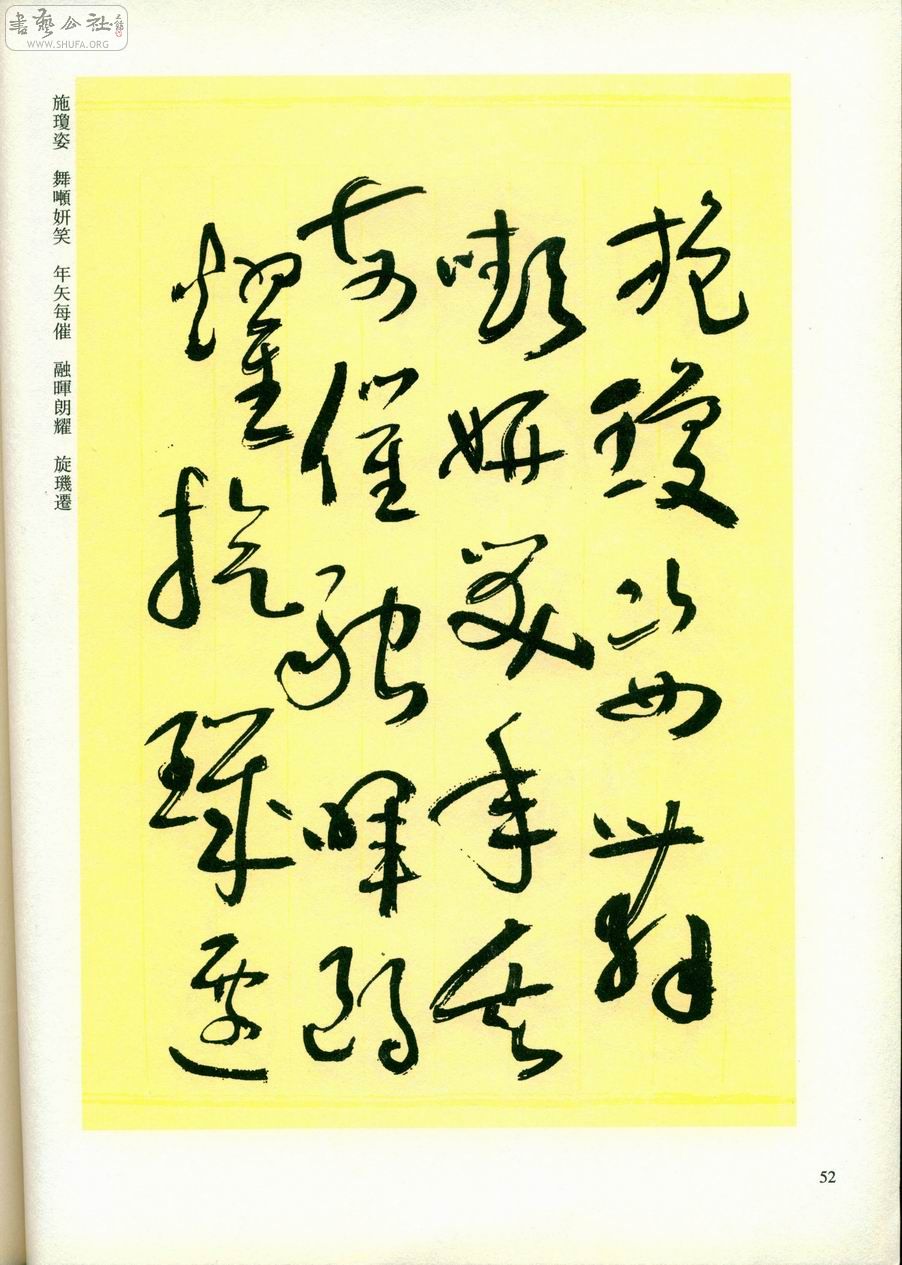 書藝公社
WWW.SHUFA.ORG
施瓊姿舞
嚬妍笑年矢
每催融暉朗
耀旋璣遷
施瓊姿 舞嚬妍笑 年矢每催 融暉朗耀 旋璣遷
52